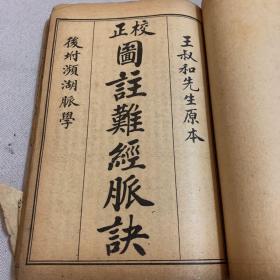 王叔和先生原本
校正
圖註難經脈訣
後坿瀕湖脈學